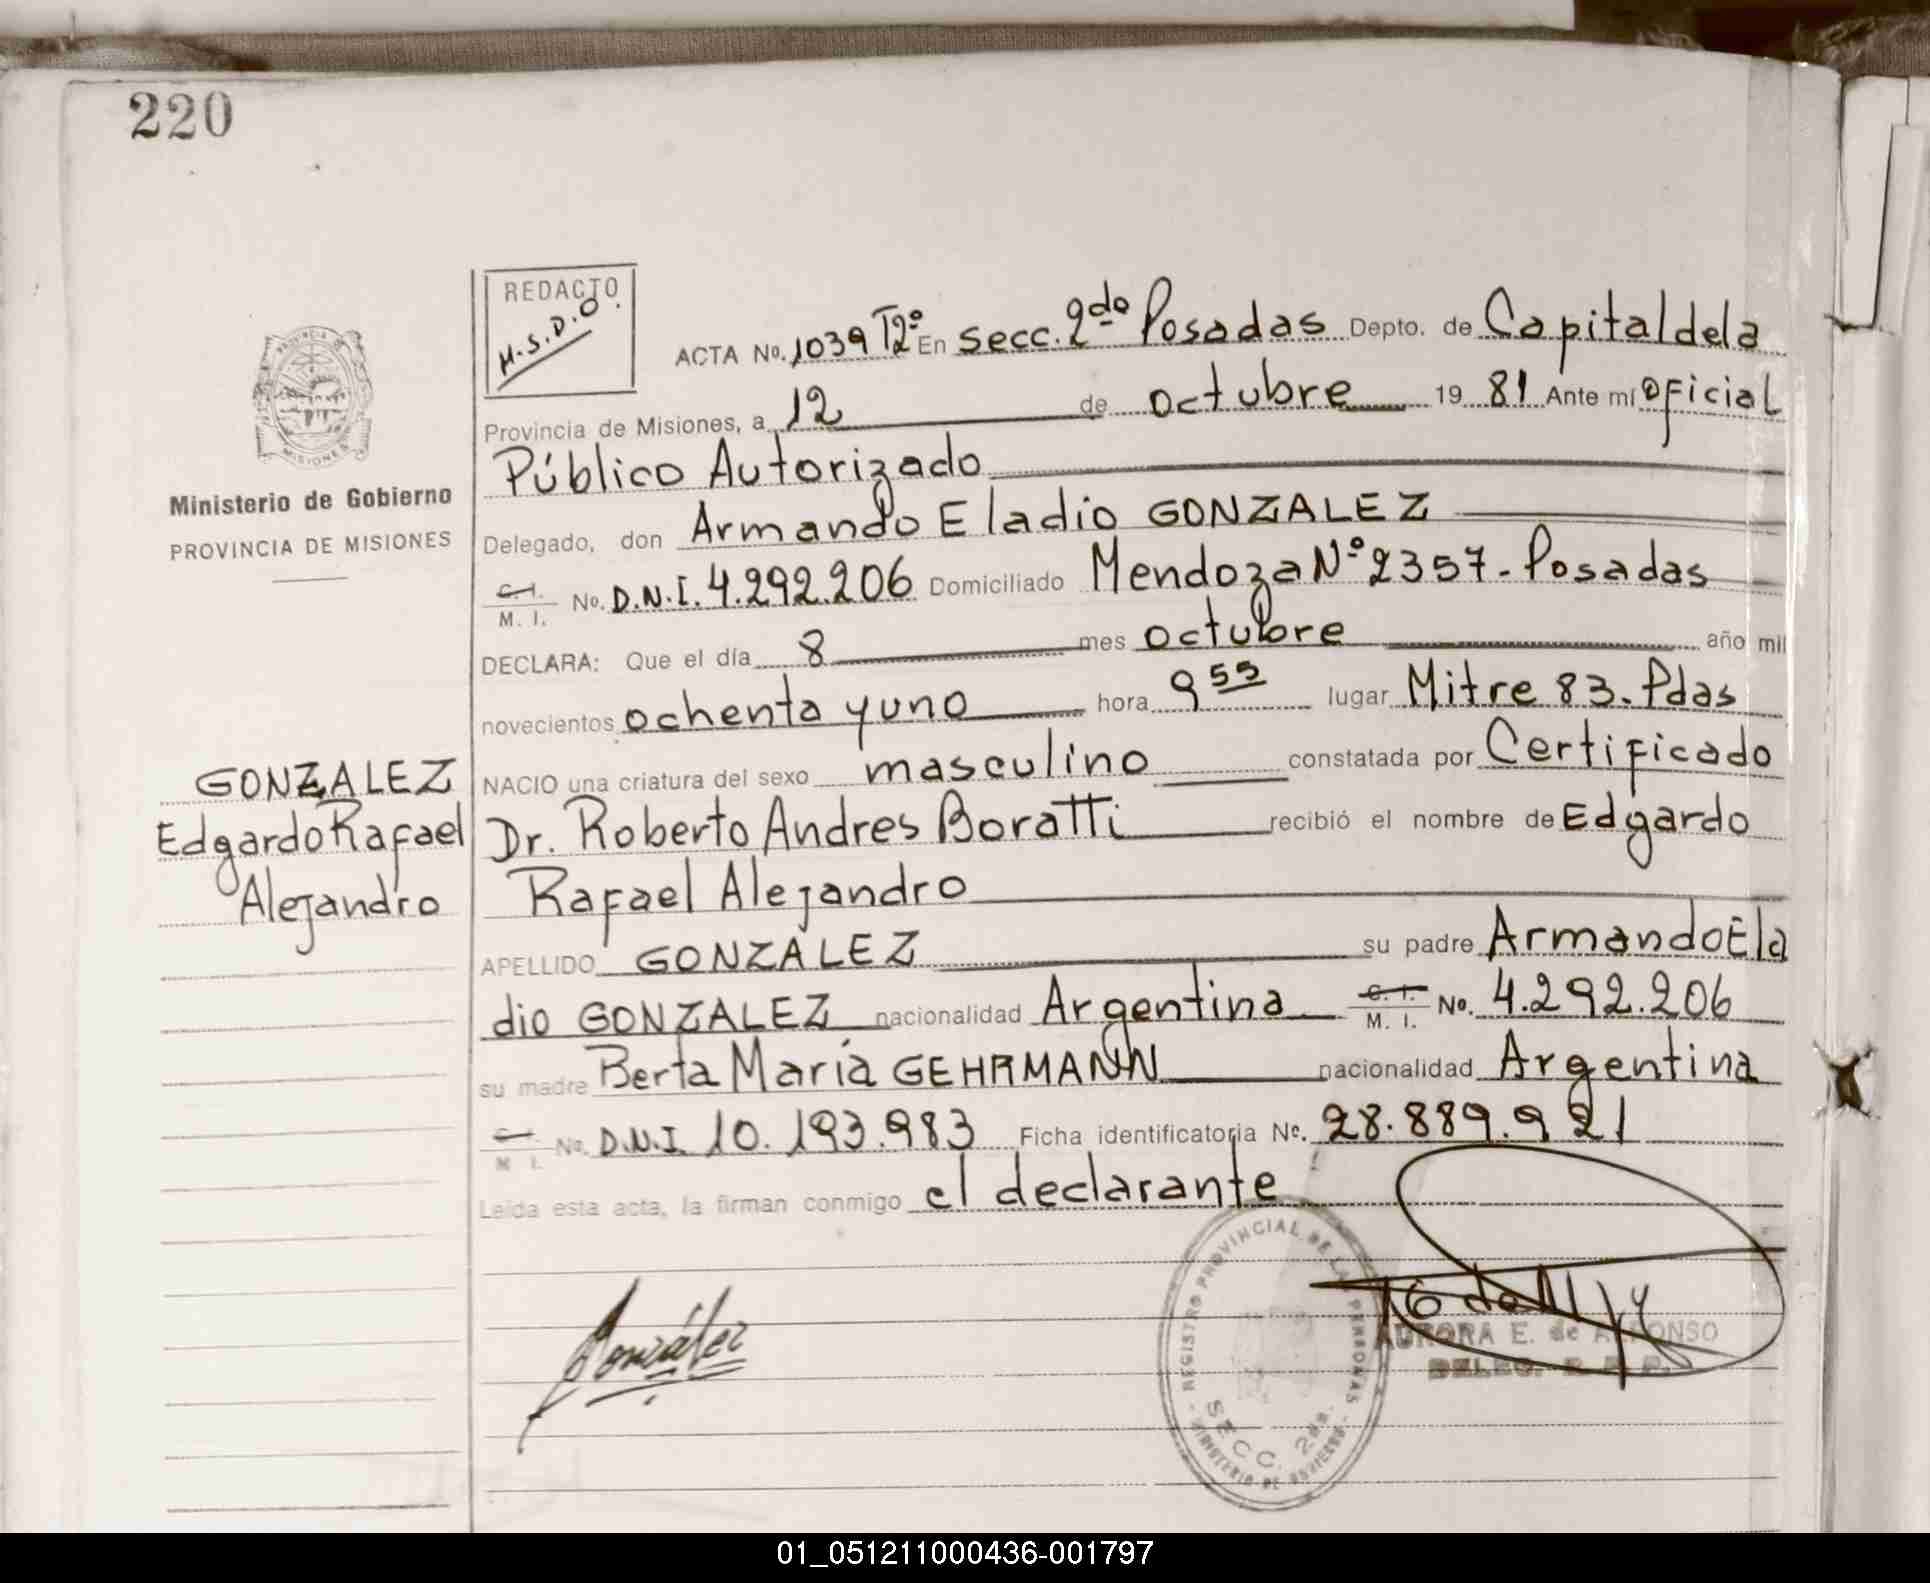 220
REDACTO
M.S.D.O.
ACTA No. 1039 Tº2º En secc. 2da Posadas Depto. de Capital de la
Provincia de Misiones, a 12 de octubre 19 81 Ante mí oficial
Público Autorizado
Delegado, don Armando Eladio GONZALEZ
C.I. M. I. No. D.N.I. 4.292.206 Domiciliado Mendoza Nº 2357 - Posadas
DECLARA: Que el día 8 mes octubre año mil
novecientos ochenta y uno hora 9 55 lugar Mitre 83. Pdas
NACIO una criatura del sexo masculino constatada por Certificado
Dr. Roberto Andres Boratti recibió el nombre de Edgardo
Rafael Alejandro
APELLIDO GONZALEZ su padre Armando Ela
dio GONZALEZ nacionalidad Argentina C. I. M. I. No. 4.292.206
su madre Berta María GEHRMANN nacionalidad Argentina
M I. No. D.N.I. 10.193.983 Ficha identificatoria No. 28.889.921
Leída esta acta, la firman conmigo el declarante
PROVINCIA DE
MISIONES
Ministerio de Gobierno
PROVINCIA DE MISIONES
GONZALEZ
Edgardo Rafael
Alejandro
González
REGISTRO PROVINCIAL DE LAS PERSONAS
SECC. 2da.
MINISTERIO DE GOBIERNO
AURORA E. de ALFONSO
DELEG. R. P. P.
01_051211000436-001797